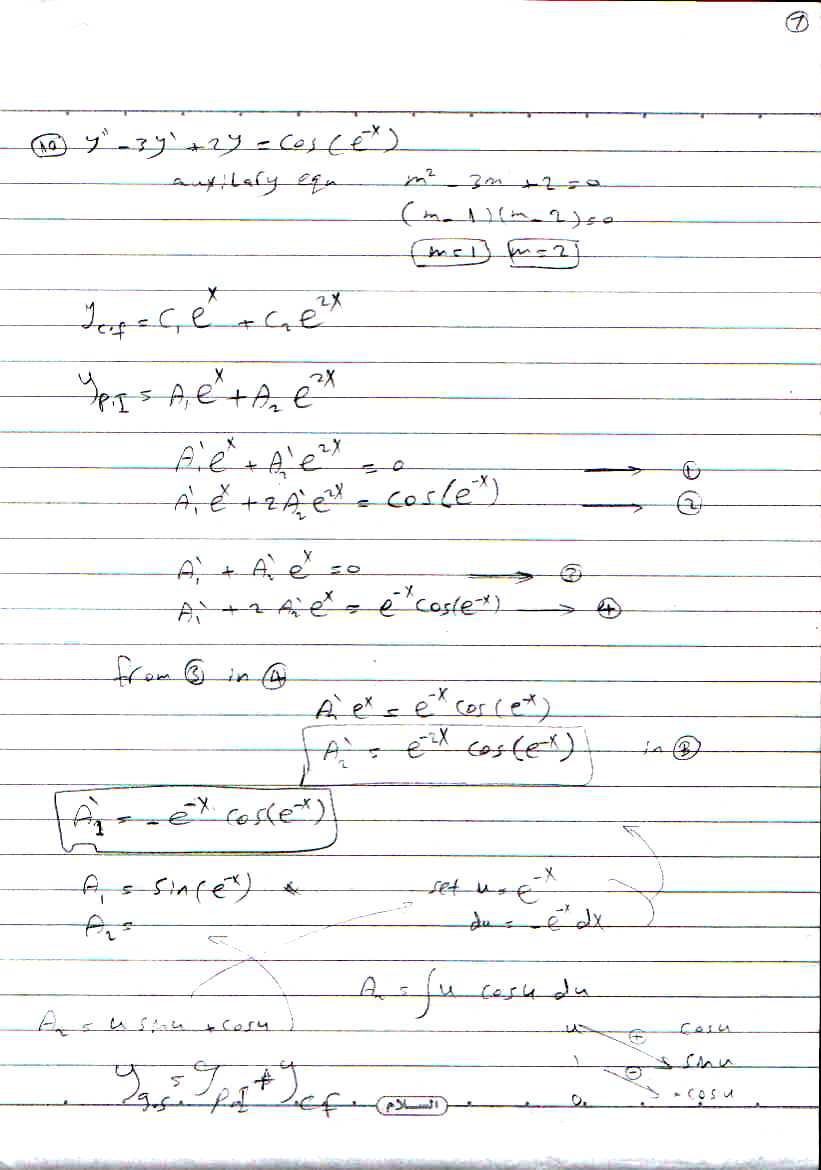 7
10 y'' - 3y' + 2y = cos(e^-x)
auxilary equ m² - 3m + 2 = 0
(m - 1)(m - 2) = 0
m = 1 m = 2
y_c.f = C₁e^x + C₂e^2x
y_P.I = A₁e^x + A₂e^2x
A₁'e^x + A₂'e^2x = 0 → ①
A₁'e^x + 2A₂'e^2x = cos(e^-x) → ②
A₁' + A₂'e^x = 0 → ③
A₁' + 2A₂'e^x = e^-x cos(e^-x) → ④
from ③ in ④
A₂'e^x = e^-x cos(e^-x)
A₂' = e^-2x cos(e^-x) in ③
A₁' = -e^-x cos(e^-x)
A₁ = sin(e^-x) set u = e^-x
A₂ = du = -e^-x dx
A₂ = ∫u cos u du
A₂ = u sin u + cos u u ⊕ cos u
1 ⊖ sin u
y_g.s = y_P.I + y_c.f 0 -cos u
السلام